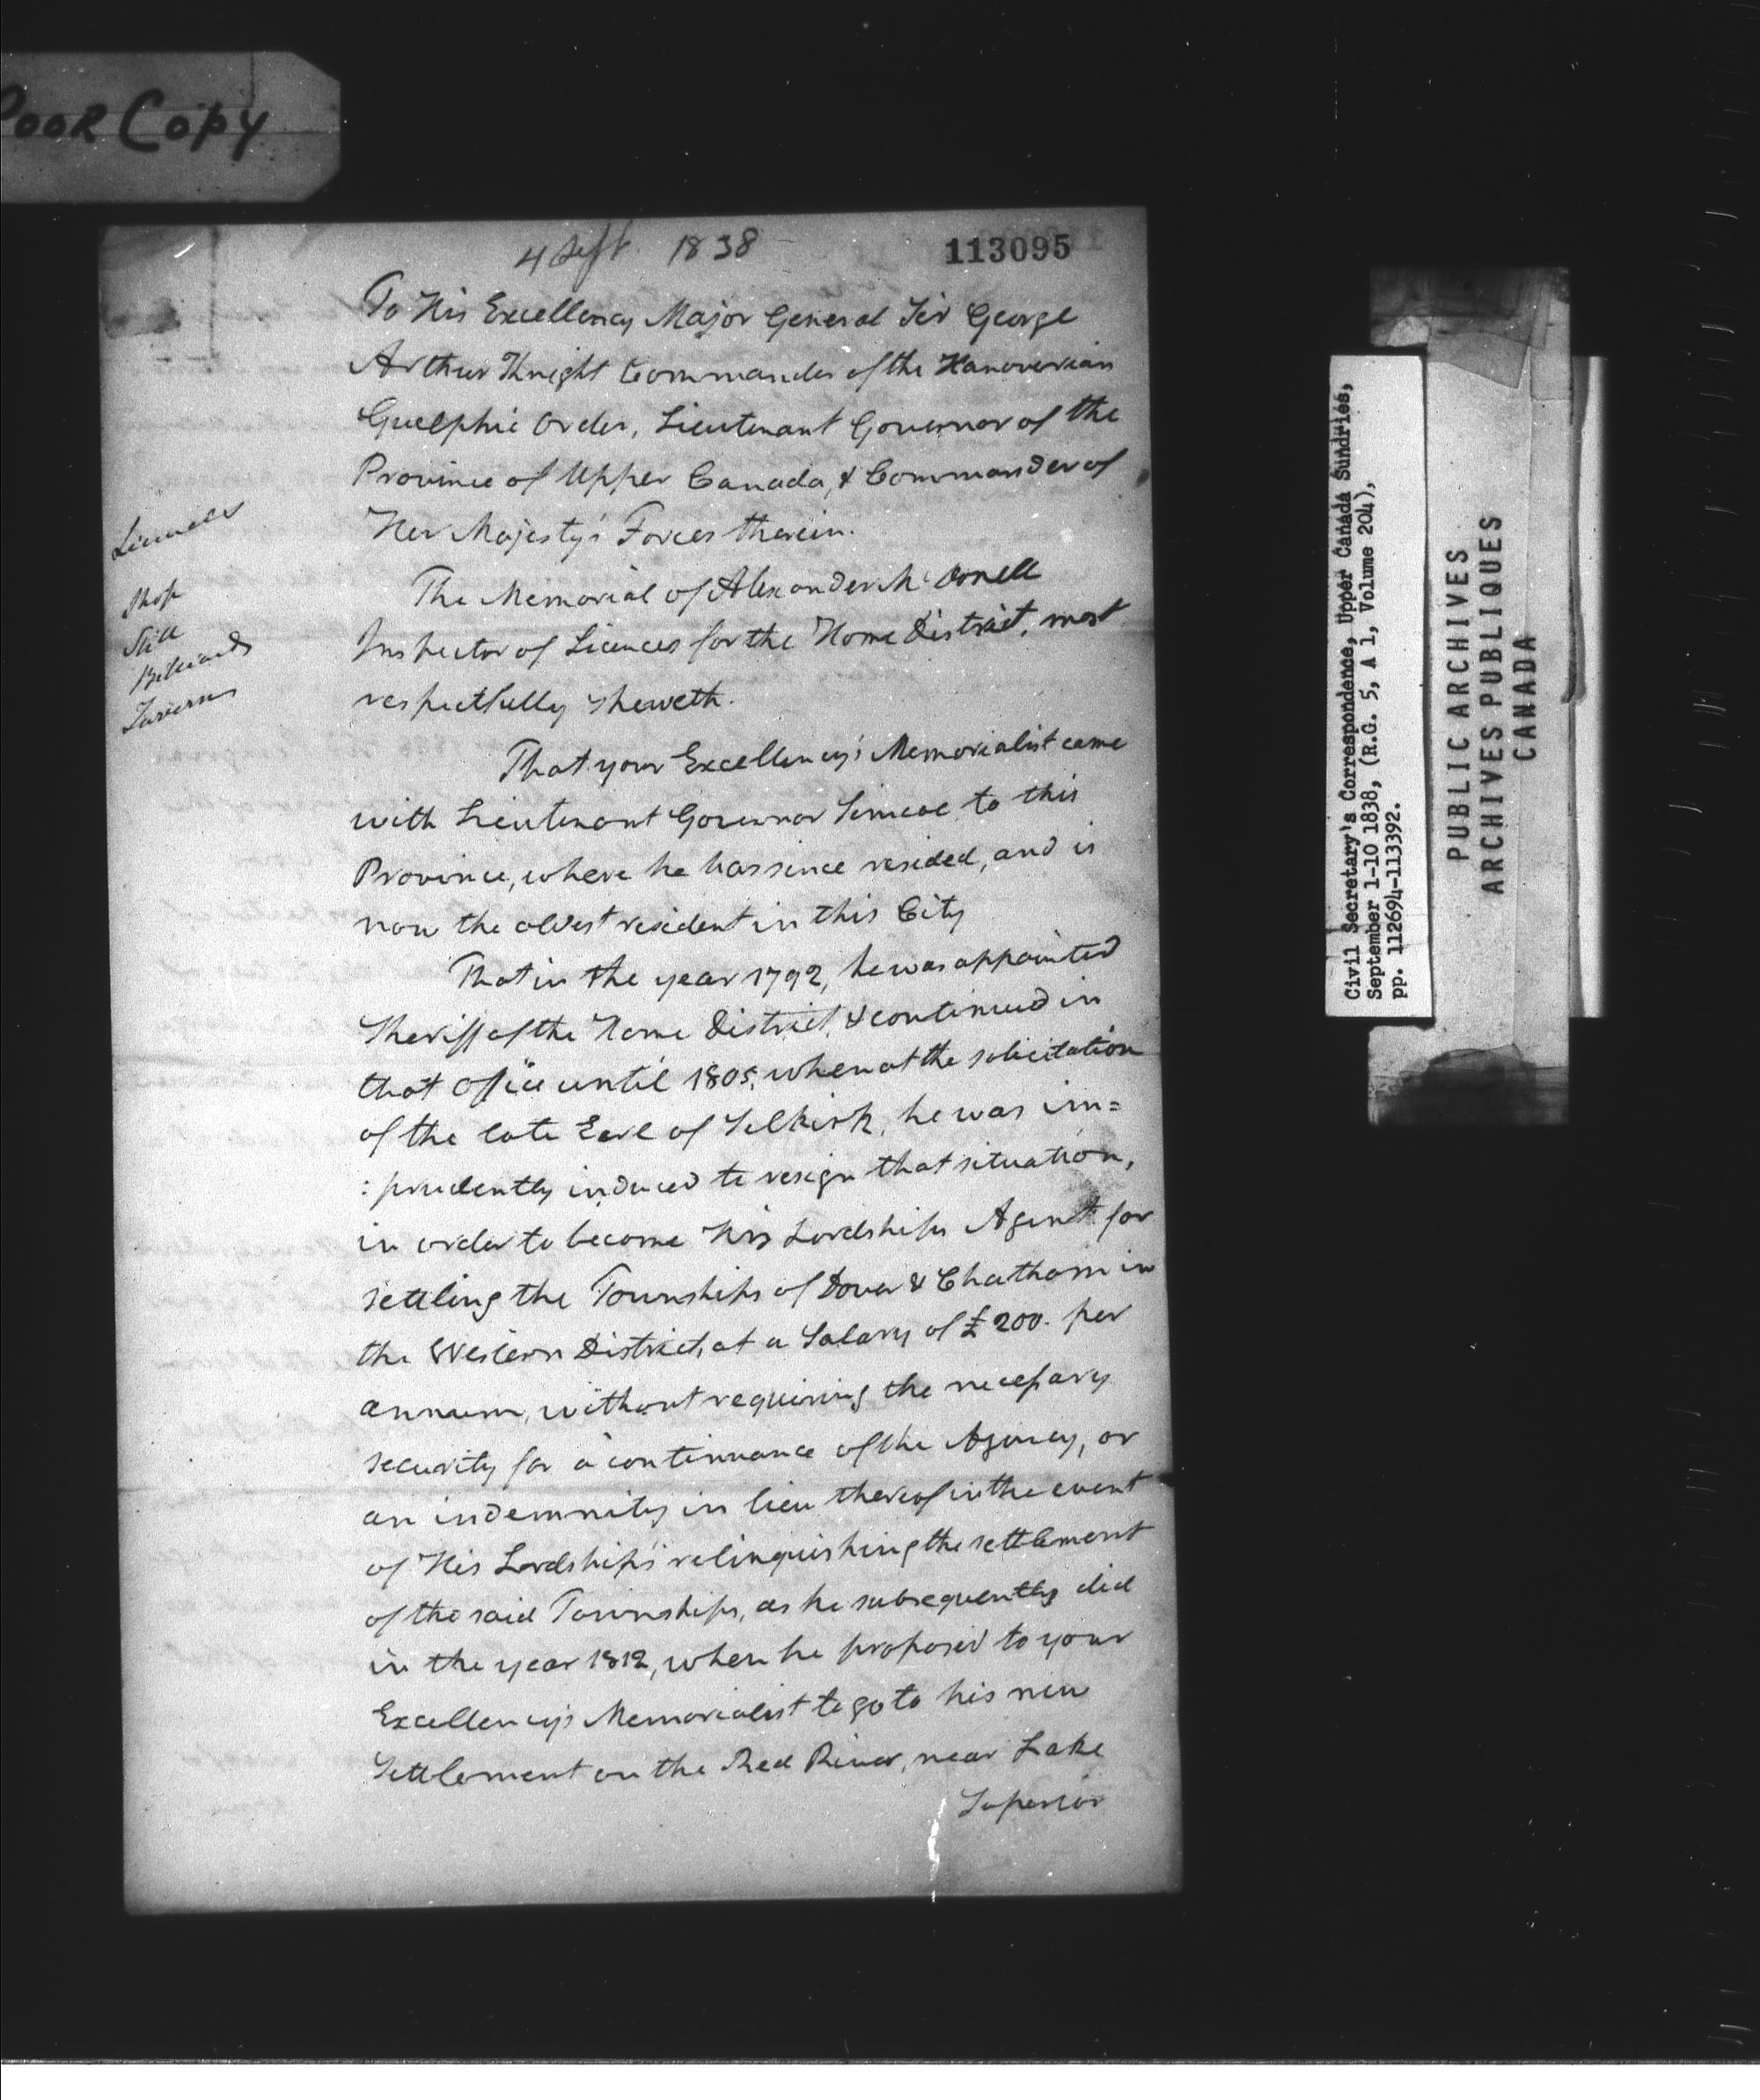 Poor Copy
4 Sept 1838
113095
To His Excellency Major General Sir George
Arthur Knight Commander of the Hanoverian
Guelphic Order, Lieutenant Governor of the
Province of Upper Canada, & Commander of
Her Majesty's Forces therein.
The Memorial of Alexander McDonell
Inspector of Licences for the Home District, most
respectfully sheweth.
That your Excellency's Memorialist came
with Lieutenant Governor Simcoe to this
Province, where he has since resided, and is
now the oldest resident in this City
That in the year 1792, he was appointed
Sheriff of the Home District, & continued in
that office until 1805, when at the solicitation
of the late Earl of Selkirk, he was im=
:prudently induced to resign that situation,
in order to become His Lordships Agent for
settling the Townships of Dover & Chatham in
the Western District, at a Salary of £200. per
annum, without requiring the necessary
security for a continuance of the Agency, or
an indemnity in lieu thereof in the event
of His Lordship's relinquishing the settlement
of the said Townships, as he subsequently did
in the year 1812, when he proposed to your
Excellency's Memorialist to go to his new
Settlement on the Red River, near Lake
Superior
Licences
Shop
Still
Billiards
Taverns
Civil Secretary's Correspondence, Upper Canada Sundries,
September 1-10 1838, (R.G. 5, A 1, Volume 204),
pp. 112694-113392.
PUBLIC ARCHIVES
ARCHIVES PUBLIQUES
CANADA